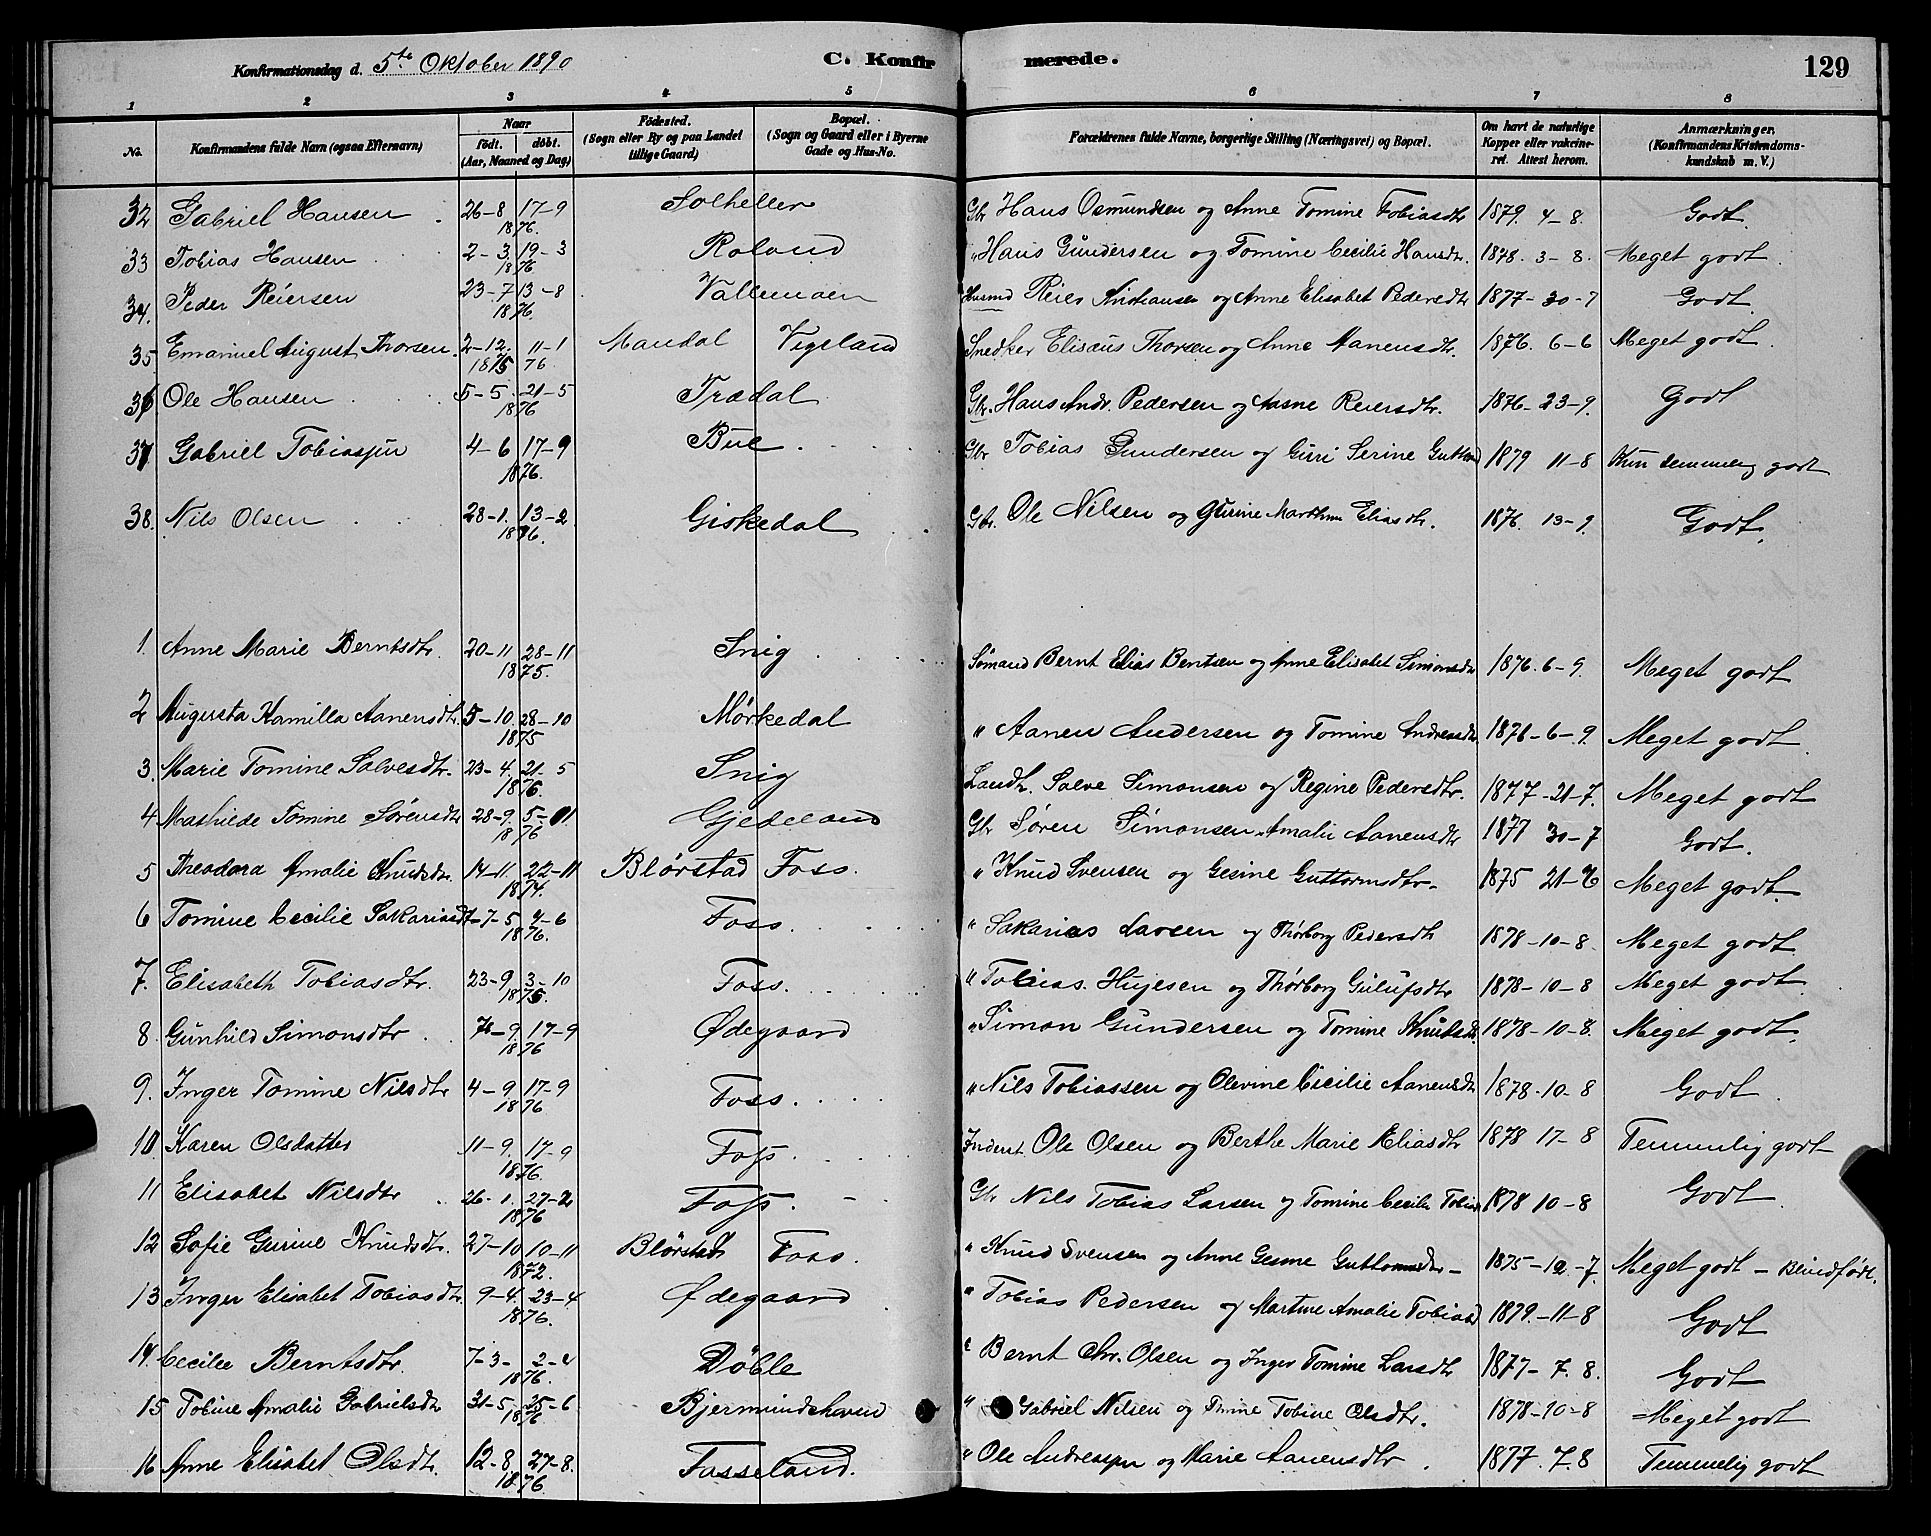 Konfirmationsdag d. 5te Oktober 1890 C. Konfirmerede. 129
1 2 3 4 5 6 7 8
No. Konfirmandens fulde Navn (ogsaa Efternavn) Naar født. døbt. (Aar, Maaned og Dag) Fødested. (Sogn eller By og paa Landet tillige Gaard) Bopæl. (Sogn og Gaard eller i Byerne Gade og Hus-No. Forældrenes fulde Navne, borgerlige Stilling (Næringsvei) og Bopæl. Om havt de naturlige Kopper eller vakcineret. Attest herom. Anmærkninger. (Konfirmandens Kristendomskundskab m. V.)
32 Gabriel Hansen 26-8 17-9 1876. Solheller Gbr Hans Osmundsen og Anne Tomine Tobiasdtr 1879. 4-8. Godt.
33 Tobias Hansen 2-3 19-3 1876 Roland " Hans Gundersen og Tomine Cecilie Hansdr. 1878. 3-8. Meget godt.
34. Peder Reiersen 23-7 13-8 1876. Vallemoen Husmd Reier Kristiansen og Anne Elisabet Pedersdtr 1877-30-7 Godt.
35 Emanuel August Thorsen. 2-12. 11-1 1875 76 Mandal Vigeland Snedker Elisæus Thorsen og Anne Aanensdtr. 1876. 6-6 Meget godt.
36 Ole Hansen 5-5. 21-5 1876 Trædal Gbr. Hans Andr. Pedersen og Aasne Reiersdtr. 1876-23-9. Godt
37 Gabriel Tobiassen 4-6 17-9 1876. Bue Gbr Tobias Gundersen og Gurri Serine 1879 11-8 Kun temmelig godt
38. Nils Olsen 28-1. 13-2 1876. Giskedal Gbr. Ole Nilsen og Gurine Marthine Eliasdtr. 1876. 13-9. Godt.
1. Anne Marie Berntsdtr. 20-11 28-11 1875. Snig Sømand Bernt Elias Bentsen og Anne Elisabet Simonsdtr 1876. 6-9. Meget godt
2 Augusta Kamilla Aanensdtr. 5-10. 28-10 1875 Mørkedal " Aanen Andersen og Tomine Andreasdtr. 1876-6-9. Meget godt.
3. Marie Tomine Salvesdtr. 23-4. 21-5 1876. Snig Landh. Salve Simonsen og Regine Pedersdtr. 1877-21-7. Meget godt
4 Mathilde Tomine Sørensdtr 28-9. 5-11. 1876 Gjedeland Gbr Søren Simonsen. Amalie Aanensdtr 1877 30-7 Godt.
5 Theodora Amalie Knudsdtr. 14-11. 22-11 1874. Blørstad Foss. " Knud Svensen og Gesine Guttormsdtr. 1875 21-6 Meget godt.
6 Tomine Cecilie Sakariasdtr 7-5 4-6 1876. Foss. " Sakarias Larsen og Thørborg Pedersdtr 1878-10-8. Meget godt
7. Elisabeth Tobiasdtr. 23-9 3-10 1875. Foss. " Tobias. Hujesen og Thørborg Gulufsdtr 1878-10-8 Meget godt.
8. Gunhild Simonsdtr 7-9. 17-9 1876 Ødegaard " Simon Gundersen og Tomine Knudsdtr. 1878-10-8. Meget godt.
9. Inger Tomine Nilsdtr 4-9 17-9 1876. Foss. " Nils Tobiassen og Olevine Cecilie Aanensdtr 1878-10-8 Godt.
10. Karen Olsdatter 11-9. 17-9 1876. Foss. Inderst Ole Olsen og Berthe Marie Eliasdtr 1878 17-8 Temmelig godt
11 Elisabet Nilsdtr 26-1. 27-2 1876 Foss. Gbr Nils Tobias Larsen og Tomine Cecilie 1878 10-8 Godt
12 Sofie Gurine Knudsdtr. 27-10 10-11 1872. Blørstad Foss. " Knud Svensen og Anne Gesine Guttormsdtr 1875-12-7. Meget godt - Blindfødt.
13 Inger Elisabet Tobiasdtr. 9-4. 23-4 1876. Ødegaard " Tobias Pedersen og Martine Amalie Tobiasd 1879.-11-8 Godt
14. Cecilie Berntsdtr. 7-3- 2-4 1876. Døble " Bernt Chr. Olsen og Inger Tomine Larsdtr 1877-7.8. Godt
15 Tobine Amalie Gabrielsdtr 31-5. 25-6 1876 Bjermundshavn " Gabriel Nilsen og Tobine Olsdtr. 1878-10-8 Meget godt
16 Anne Elisabet Olsdtr. 12-8 27-8. 1876 Fasseland. " Ole Andreassen og Marie Aanensdtr. 1877. 7.8 Temmelig godt